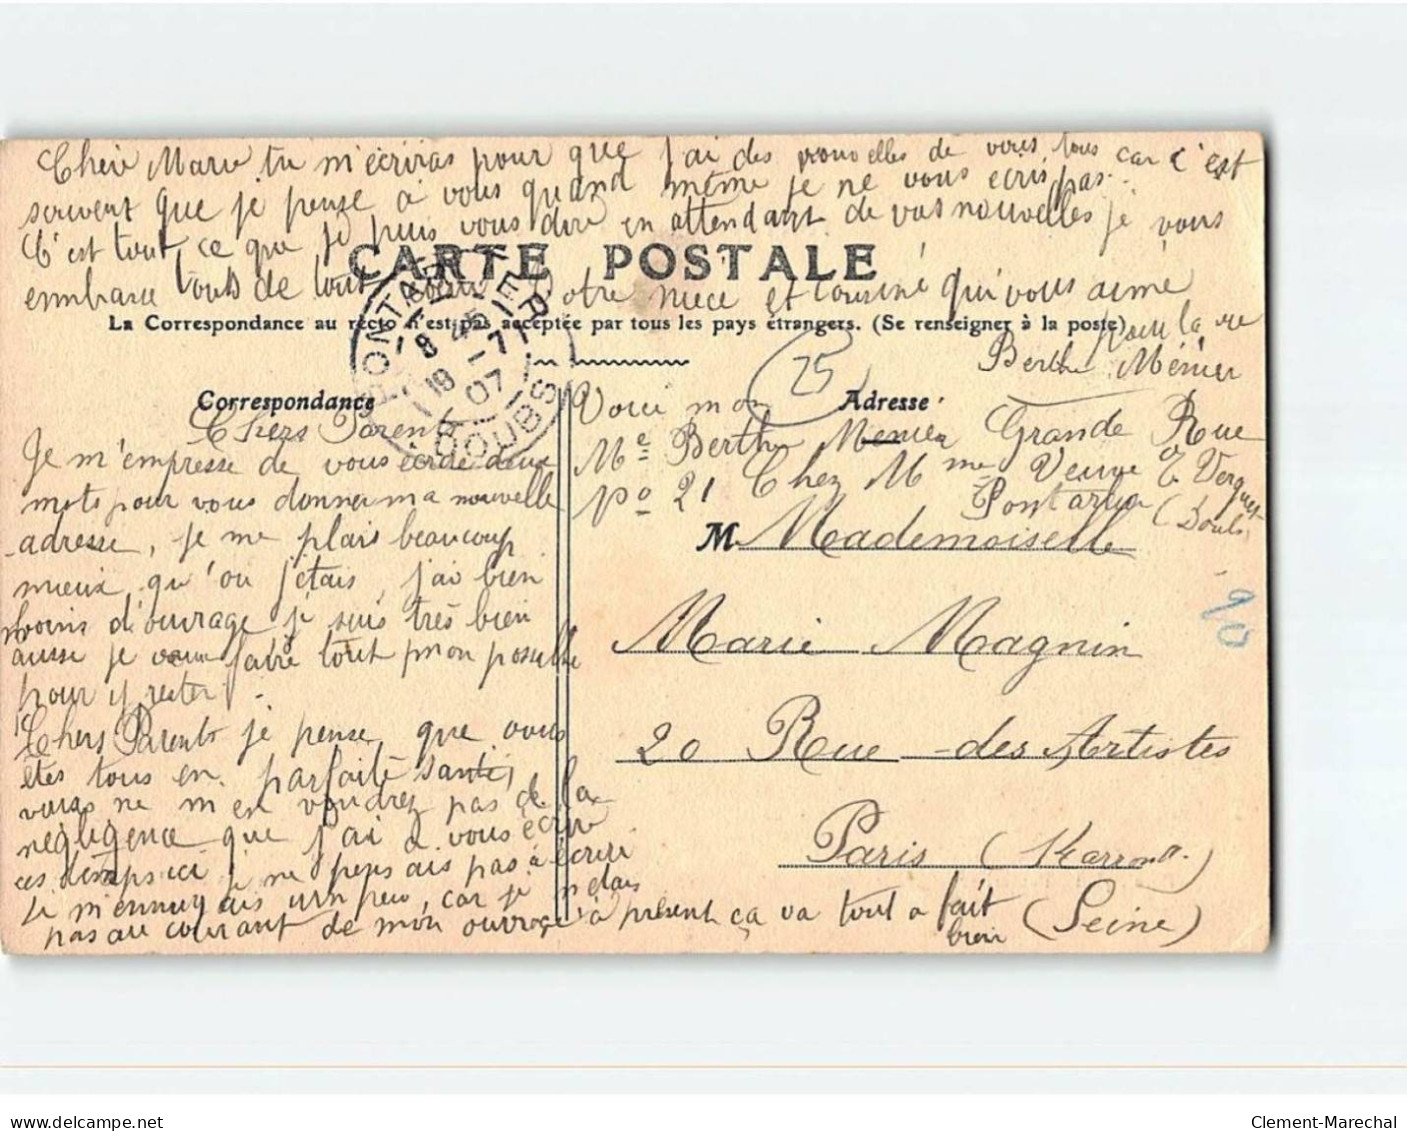 Chère Marie tu m'écriras pour que j'ai des nouvelles de vous tous car c'est
souvent que je pense à vous quand même je ne vous écris pas.
C'est tout ce que je puis vous dire en attendant de vos nouvelles je vous
embrasse tous de tout cœur Votre nièce et cousine qui vous aime
pour la vie
Berthe Ménier
CARTE POSTALE
La Correspondance au recto n'est pas acceptée par tous les pays étrangers. (Se renseigner à la poste)
PONTARLIER
8 45
18 -7
07
DOUBS
25
Correspondance
Chers Parents
Je m'empresse de vous écrire deux
mots pour vous donner ma nouvelle
adresse, je me plais beaucoup
mieux qu'ou j'étais, j'ai bien
moins d'ouvrage je suis très bien
aussi je veux faire tout mon possible
pour y rester.
Chers Parents je pense que vous
êtes tous en parfaite santé,
vous ne m'en voudrez pas de la
négligence que j'ai à vous écrire
ces temps ici je ne pensais pas à écrire
je m'ennuyais un peu, car je n'étais
pas au courant de mon ouvrage à présent ça va tout a fait
bien
Adresse
Voici mon
Me Berthe Menier Grande Rue
No 21 Chez Mme Veuve E Verguet
Pontarlier (Doubs)
M Mademoiselle
Marie Magnin
20 Rue des Artistes
Paris
(Seine)
90
delcampe.net
Clement-Marechal